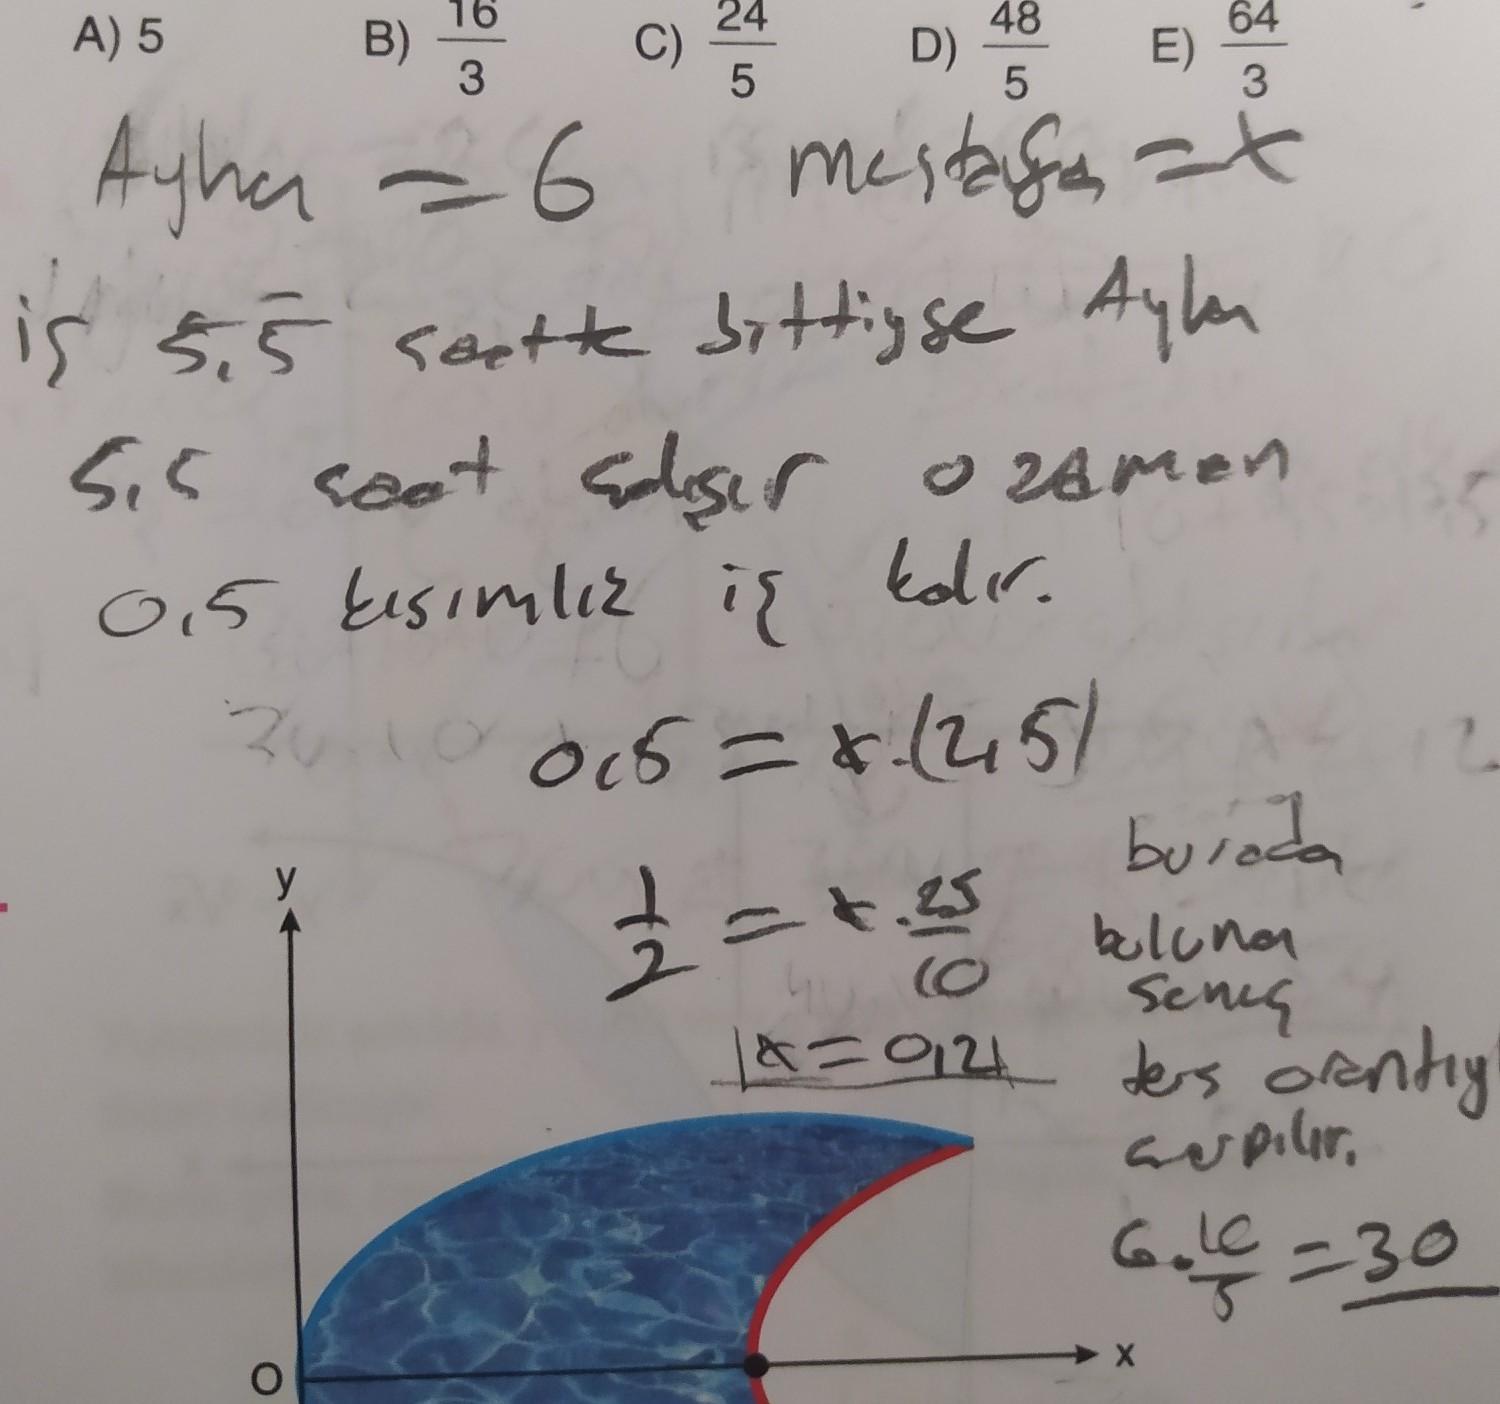 A) 5 B) 16/3 C) 24/5 D) 48/5 E) 64/3
Ayhan = 6 mustafa = x
iş 5,5 saatte bittiyse Ayhan
5,5 saat çalışır o zaman
0,5 kısımlık iş kalır.
0,5 = x.(2,5)
1/2 = x.25/10
x = 0,2
burada
bulunan
sonuç
ters orantıy
çarpılır.
6.10/5 = 30
y
O
x